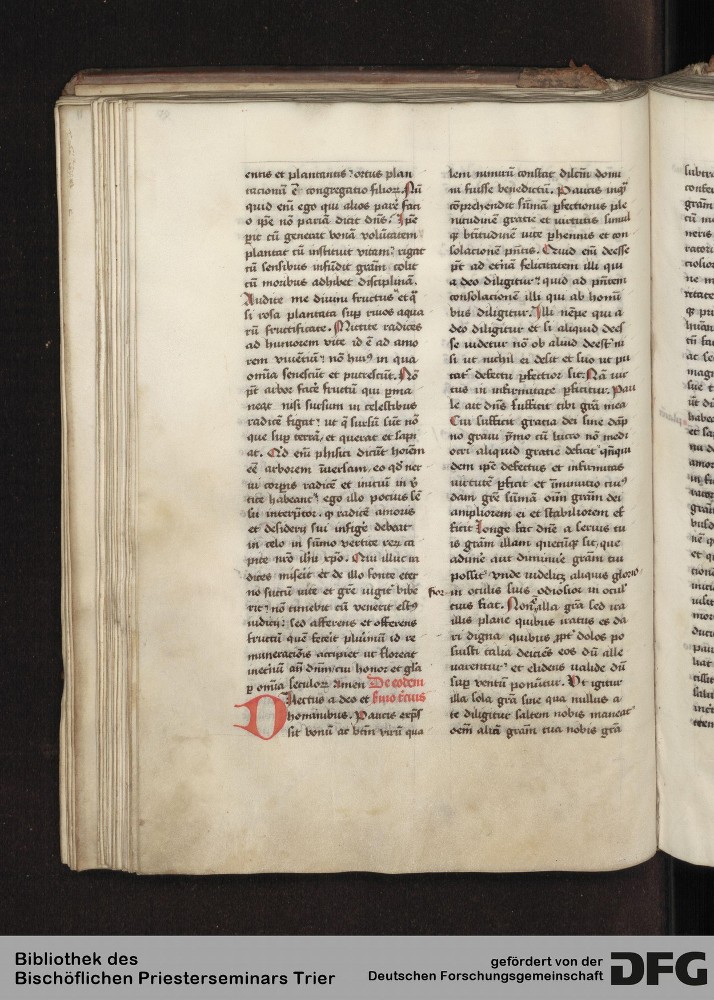 entis et plantantis? ortus plan
tacionū ē congregatio filioꝝ. Nū
quid eni ego qui alios parē faci
o ip̄e nō pariā dicit dn̄s. Ip̄e
ꝑit cū generat bonā volūtatem
plantat cū instituit vitam? rigat
cū sensibus infūdit grām colit
cū moribus adhibet disciplinā.
Audite me diuini fructus et q̄
si rosa plantata suꝑ riuos aqua
rū fructificate. Mittite radices
ad humorem vite id ē ad amo
rem viuētiū? nō huiꝰ in qua
omīa senescūt et putrescūt. Nō
pt̄ arbor facē fructū qui ꝑma
neat nisi sursum in celestibus
radicē figat? ut q̄ sursū sūt nō
que suꝑ terrā, et querat et sapi
at. Qd̄ eni phisici dicūt hoiem
eē arborem īuersam, eo qd̄ ner
ui corꝑis radicē et iniciū in v̄
tice habeant? ego illo pocius sē
su interp̄tor. ꝙ radicē amoris
et desiderij sui infigē debeat
in celo in sūmo vertice reꝝ ca
pite nr̄o ih̄u xp̄o. Qui illuc ra
dices miserit et de illo fonte eter
no succū vite et grē iugit̄ bibe
rit? nō timebit cū venerit estꝰ
iudicij? sed afferens et offerens
fructū quē fecit plurimū id re
muneracōis accipiet ut floreat
ineternū an̄ dnm̄, cui honor et gl̄a
ꝑ omīa seculoꝝ Amen De eodem
Dilectus a deo et sermo tercius
hominibus. Paucis expͣs
sit bonū ac btm̄ virū qua
lem nimirū constat dilcm̄ domi
ni fuisse benedictū. Paucis inqͣ
cōprehendit sūmā ꝑfectionis ple
nitudinē gratie et virtutis simul
ꝙ btītudinē vite ꝑhennis et con
solacionē pn̄tis. Quid eni deesse
pt̄ ad et̄nā felicitatem illi qui
a deo diligitur? quid ad pn̄tem
consolacionē illi qui ab homī
bus diligitur. Illi nēpe qui a
deo diligitur et si aliquid dees
se videtur nō ob aliud deest nͥ
si ut nichil ei desit et suo ut pu
tatͬ defectu ꝑfectior sit. Nā vir
tus in infirmitate ꝑficitur. Pau
le ait dn̄s sufficit tibi grā mea
Cui sufficit gracia dei sine dāp
no graui ymo cū lucro nō medi
ocri aliquid gratie desiat qn̄qui
dem ip̄e defectus et infirmitas
virtutē ꝑficit et īminutio ciuꝰ
dam grē sūmā oīm grām dei
ampliorem ei et stabiliorem ef
ficit Longe fac dn̄e a seruis tu
is grām illam quecūqꝫ sit, que
adime aut diminue grām tui
possit vnde videliꝫ aliquis glorio
sior in oculis suis odiosior in oculͥ
tuis fiat. Non ē illa grā sed ira
illis plane quibus iratus es da
ri digna quibus ꝓpt̄ dolos po
suisti talia deiciēs eos dū alle
uarentur et elidens valide dū
suꝑ ventū ponūtur. Vt igitur
illa sola grā sine qua nullus a
te diligitur saltem nobis maneat
oēm aliā grām tua nobis grā
Bibliothek des
Bischöflichen Priesterseminars Trier
gefördert von der
Deutschen Forschungsgemeinschaft
DFG